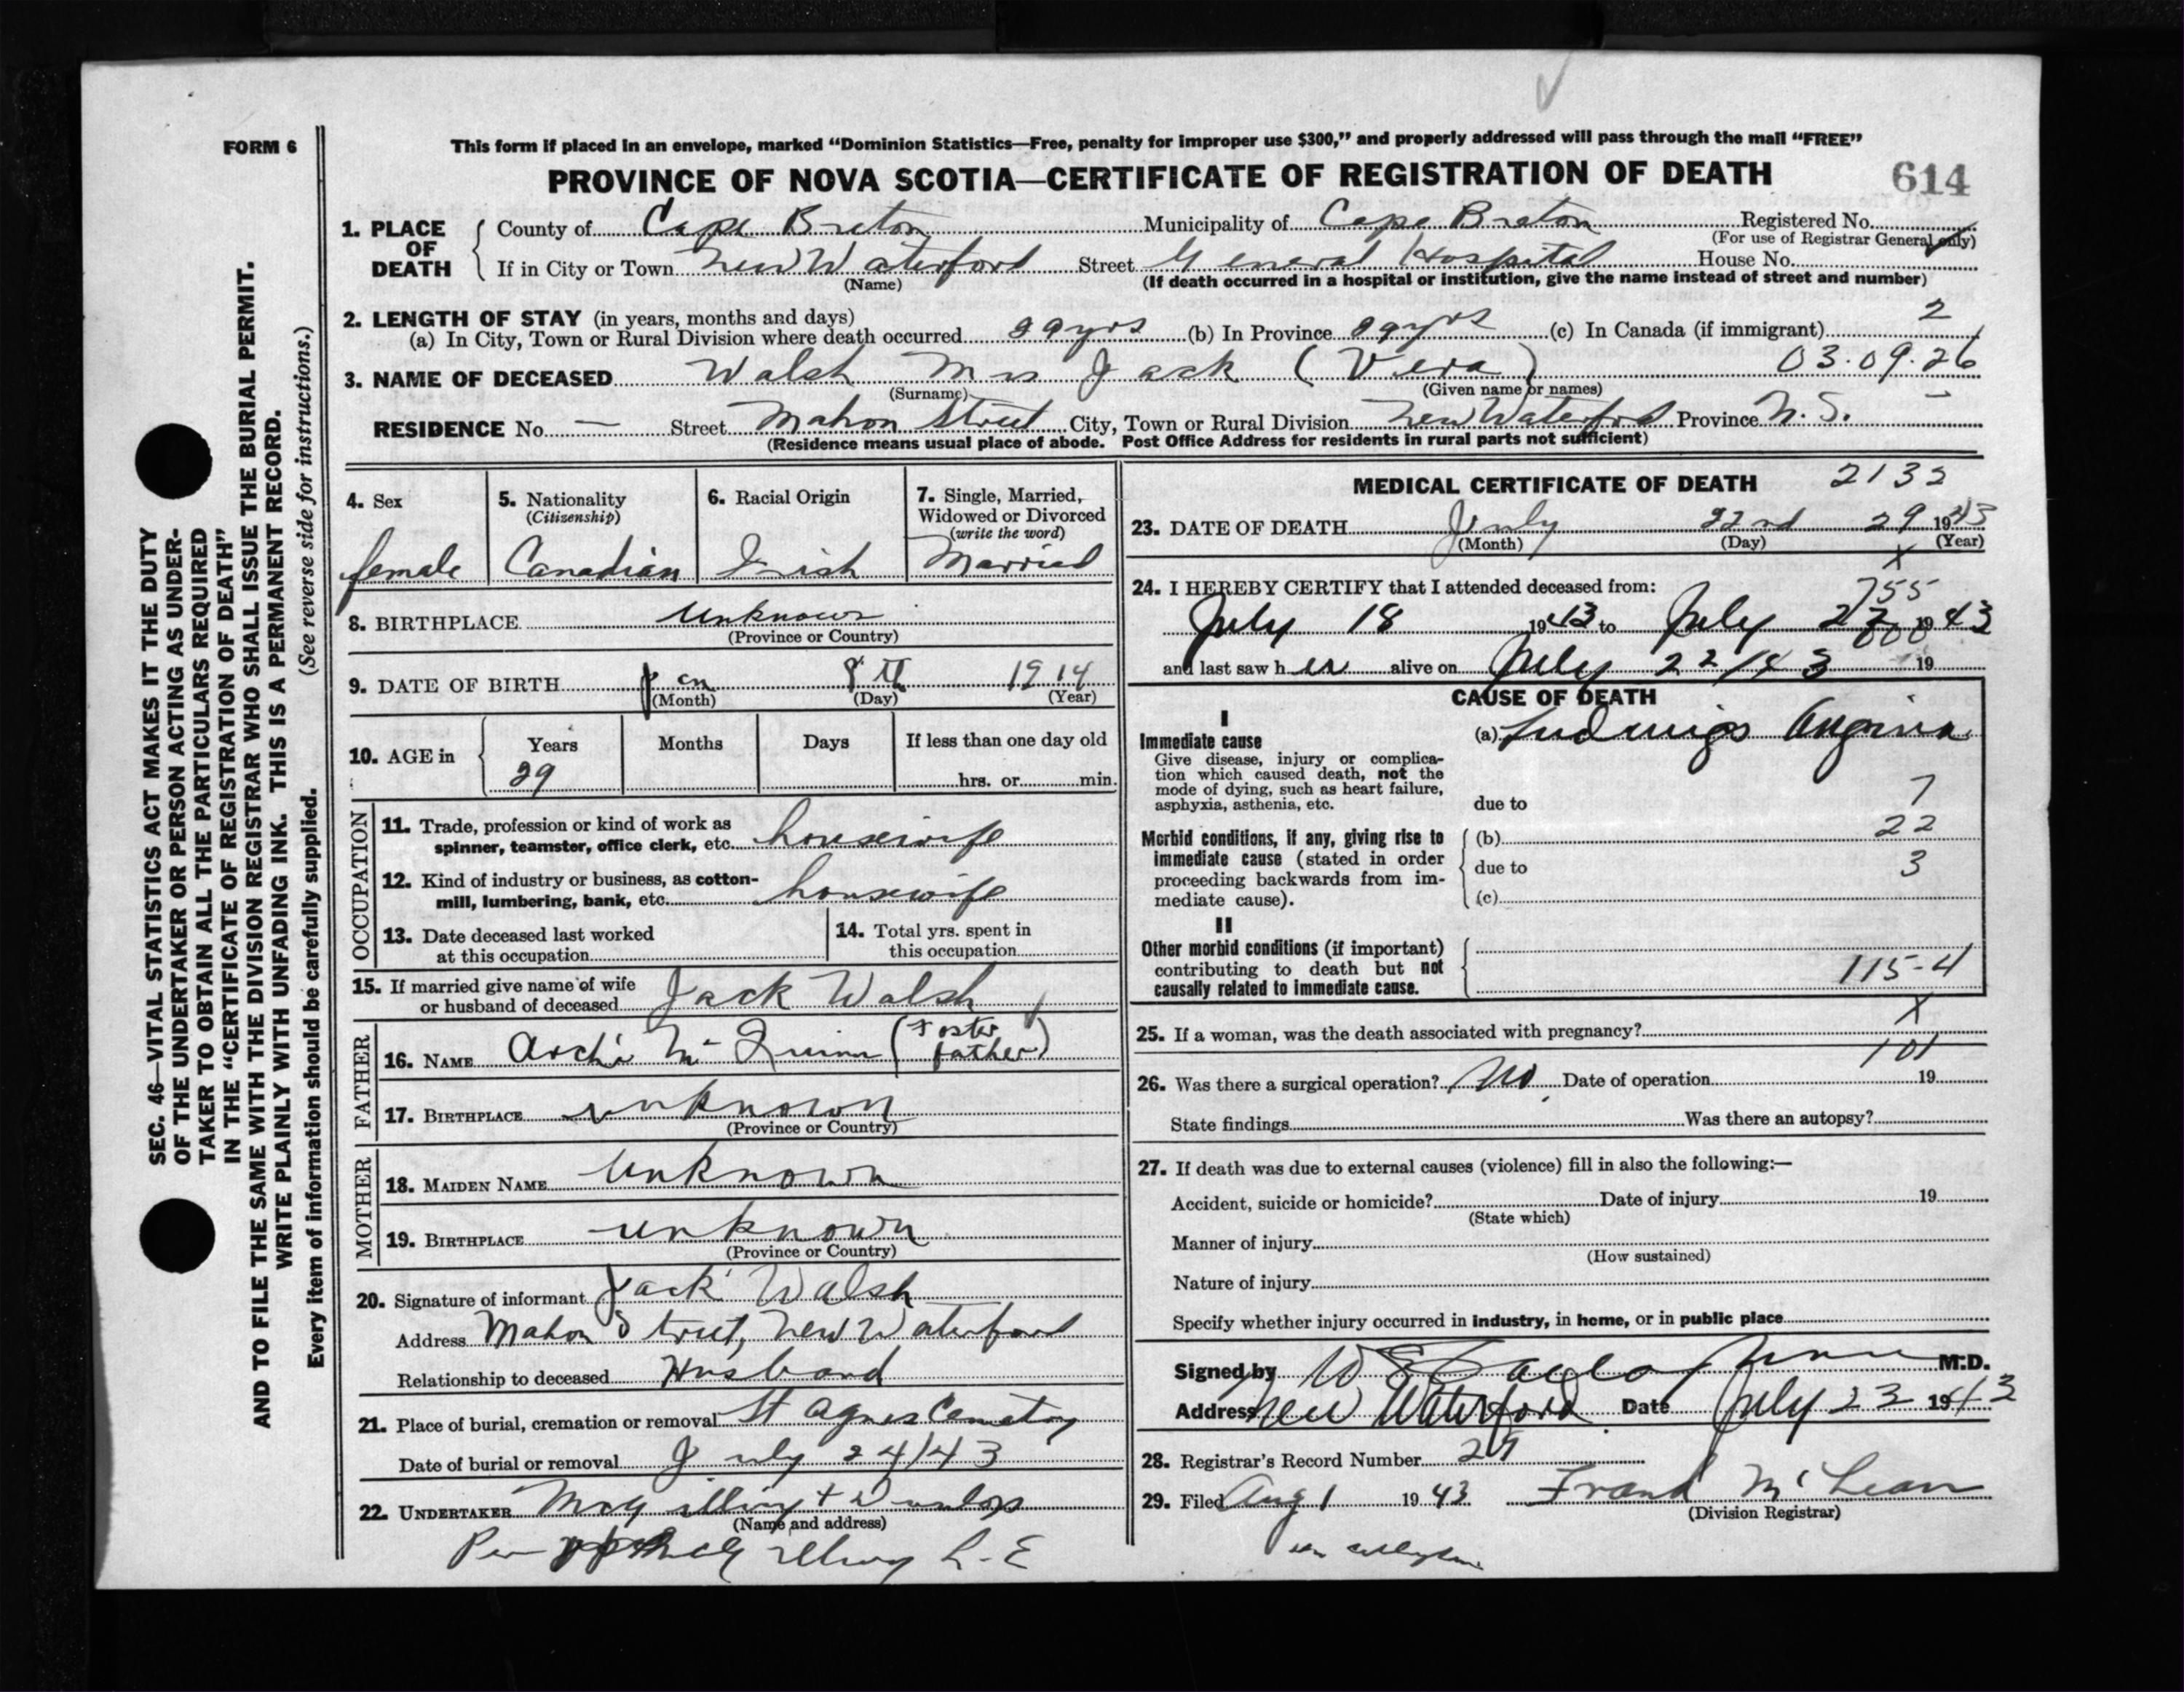 FORM 6
This form if placed in an envelope, marked “Dominion Statistics—Free, penalty for improper use $300,” and properly addressed will pass through the mail “FREE”
PROVINCE OF NOVA SCOTIA—CERTIFICATE OF REGISTRATION OF DEATH
614
1. PLACE OF DEATH
County of Cape Breton Municipality of Cape Breton Registered No.
(For use of Registrar General only)
If in City or Town New Waterford Street General Hospital House No.
(Name) (If death occurred in a hospital or institution, give the name instead of street and number)
2. LENGTH OF STAY (in years, months and days)
(a) In City, Town or Rural Division where death occurred 29 yrs (b) In Province 29 yrs (c) In Canada (if immigrant) 2
3. NAME OF DECEASED Walsh Mrs Jack (Vera) 03.09.26
(Surname) (Given name or names)
RESIDENCE No — Street Mahon Street City, Town or Rural Division New Waterford Province N.S.
(Residence means usual place of abode. Post Office Address for residents in rural parts not sufficient)
4. Sex
female
5. Nationality
(Citizenship)
Canadian
6. Racial Origin
Irish
7. Single, Married,
Widowed or Divorced
(write the word)
Married
8. BIRTHPLACE Unknown
(Province or Country)
9. DATE OF BIRTH Jan 8th 1914
(Month) (Day) (Year)
10. AGE in Years Months Days If less than one day old
29 hrs. or min.
OCCUPATION
11. Trade, profession or kind of work as
spinner, teamster, office clerk, etc. housewife
12. Kind of industry or business, as cotton-
mill, lumbering, bank, etc. housewife
13. Date deceased last worked
at this occupation
14. Total yrs. spent in
this occupation
15. If married give name of wife
or husband of deceased Jack Walsh
FATHER
16. NAME Archie Mc Quinn (Foster father)
17. BIRTHPLACE unknown
(Province or Country)
MOTHER
18. MAIDEN NAME Unknown
19. BIRTHPLACE unknown
(Province or Country)
20. Signature of informant Jack Walsh
Address Mahon Street, New Waterford
Relationship to deceased Husband
21. Place of burial, cremation or removal St Agnes Cemetery
Date of burial or removal July 24/43
22. UNDERTAKER McGillivry + Dunlop
(Name and address)
Per McGillivry L-E
MEDICAL CERTIFICATE OF DEATH 2132
23. DATE OF DEATH July 22nd 29 1943
(Month) (Day) (Year)
X
24. I HEREBY CERTIFY that I attended deceased from:
755
July 18 1943 to July 22 1943
000
and last saw her alive on July 22/43 19
CAUSE OF DEATH
I
Immediate cause
Give disease, injury or complica-
tion which caused death, not the
mode of dying, such as heart failure,
asphyxia, asthenia, etc.
(a) Ludwigs Angina
due to 7
Morbid conditions, if any, giving rise to
immediate cause (stated in order
proceeding backwards from im-
mediate cause).
(b) 22
due to 3
(c)
II
Other morbid conditions (if important)
contributing to death but not
causally related to immediate cause.
115-4
X
25. If a woman, was the death associated with pregnancy?
101
26. Was there a surgical operation? No Date of operation 19
State findings Was there an autopsy?
27. If death was due to external causes (violence) fill in also the following:—
Accident, suicide or homicide? Date of injury 19
(State which)
Manner of injury
(How sustained)
Nature of injury
Specify whether injury occurred in industry, in home, or in public place
Signed by M.D.
Address New Waterford Date July 23 1943
28. Registrar's Record Number 29
29. Filed Aug 1 1943 Frank McLean
(Division Registrar)
SEC. 46—VITAL STATISTICS ACT MAKES IT THE DUTY
OF THE UNDERTAKER OR PERSON ACTING AS UNDER-
TAKER TO OBTAIN ALL THE PARTICULARS REQUIRED
IN THE “CERTIFICATE OF REGISTRATION OF DEATH”
AND TO FILE THE SAME WITH THE DIVISION REGISTRAR WHO SHALL ISSUE THE BURIAL PERMIT.
WRITE PLAINLY WITH UNFADING INK. THIS IS A PERMANENT RECORD.
Every item of information should be carefully supplied. (See reverse side for instructions.)